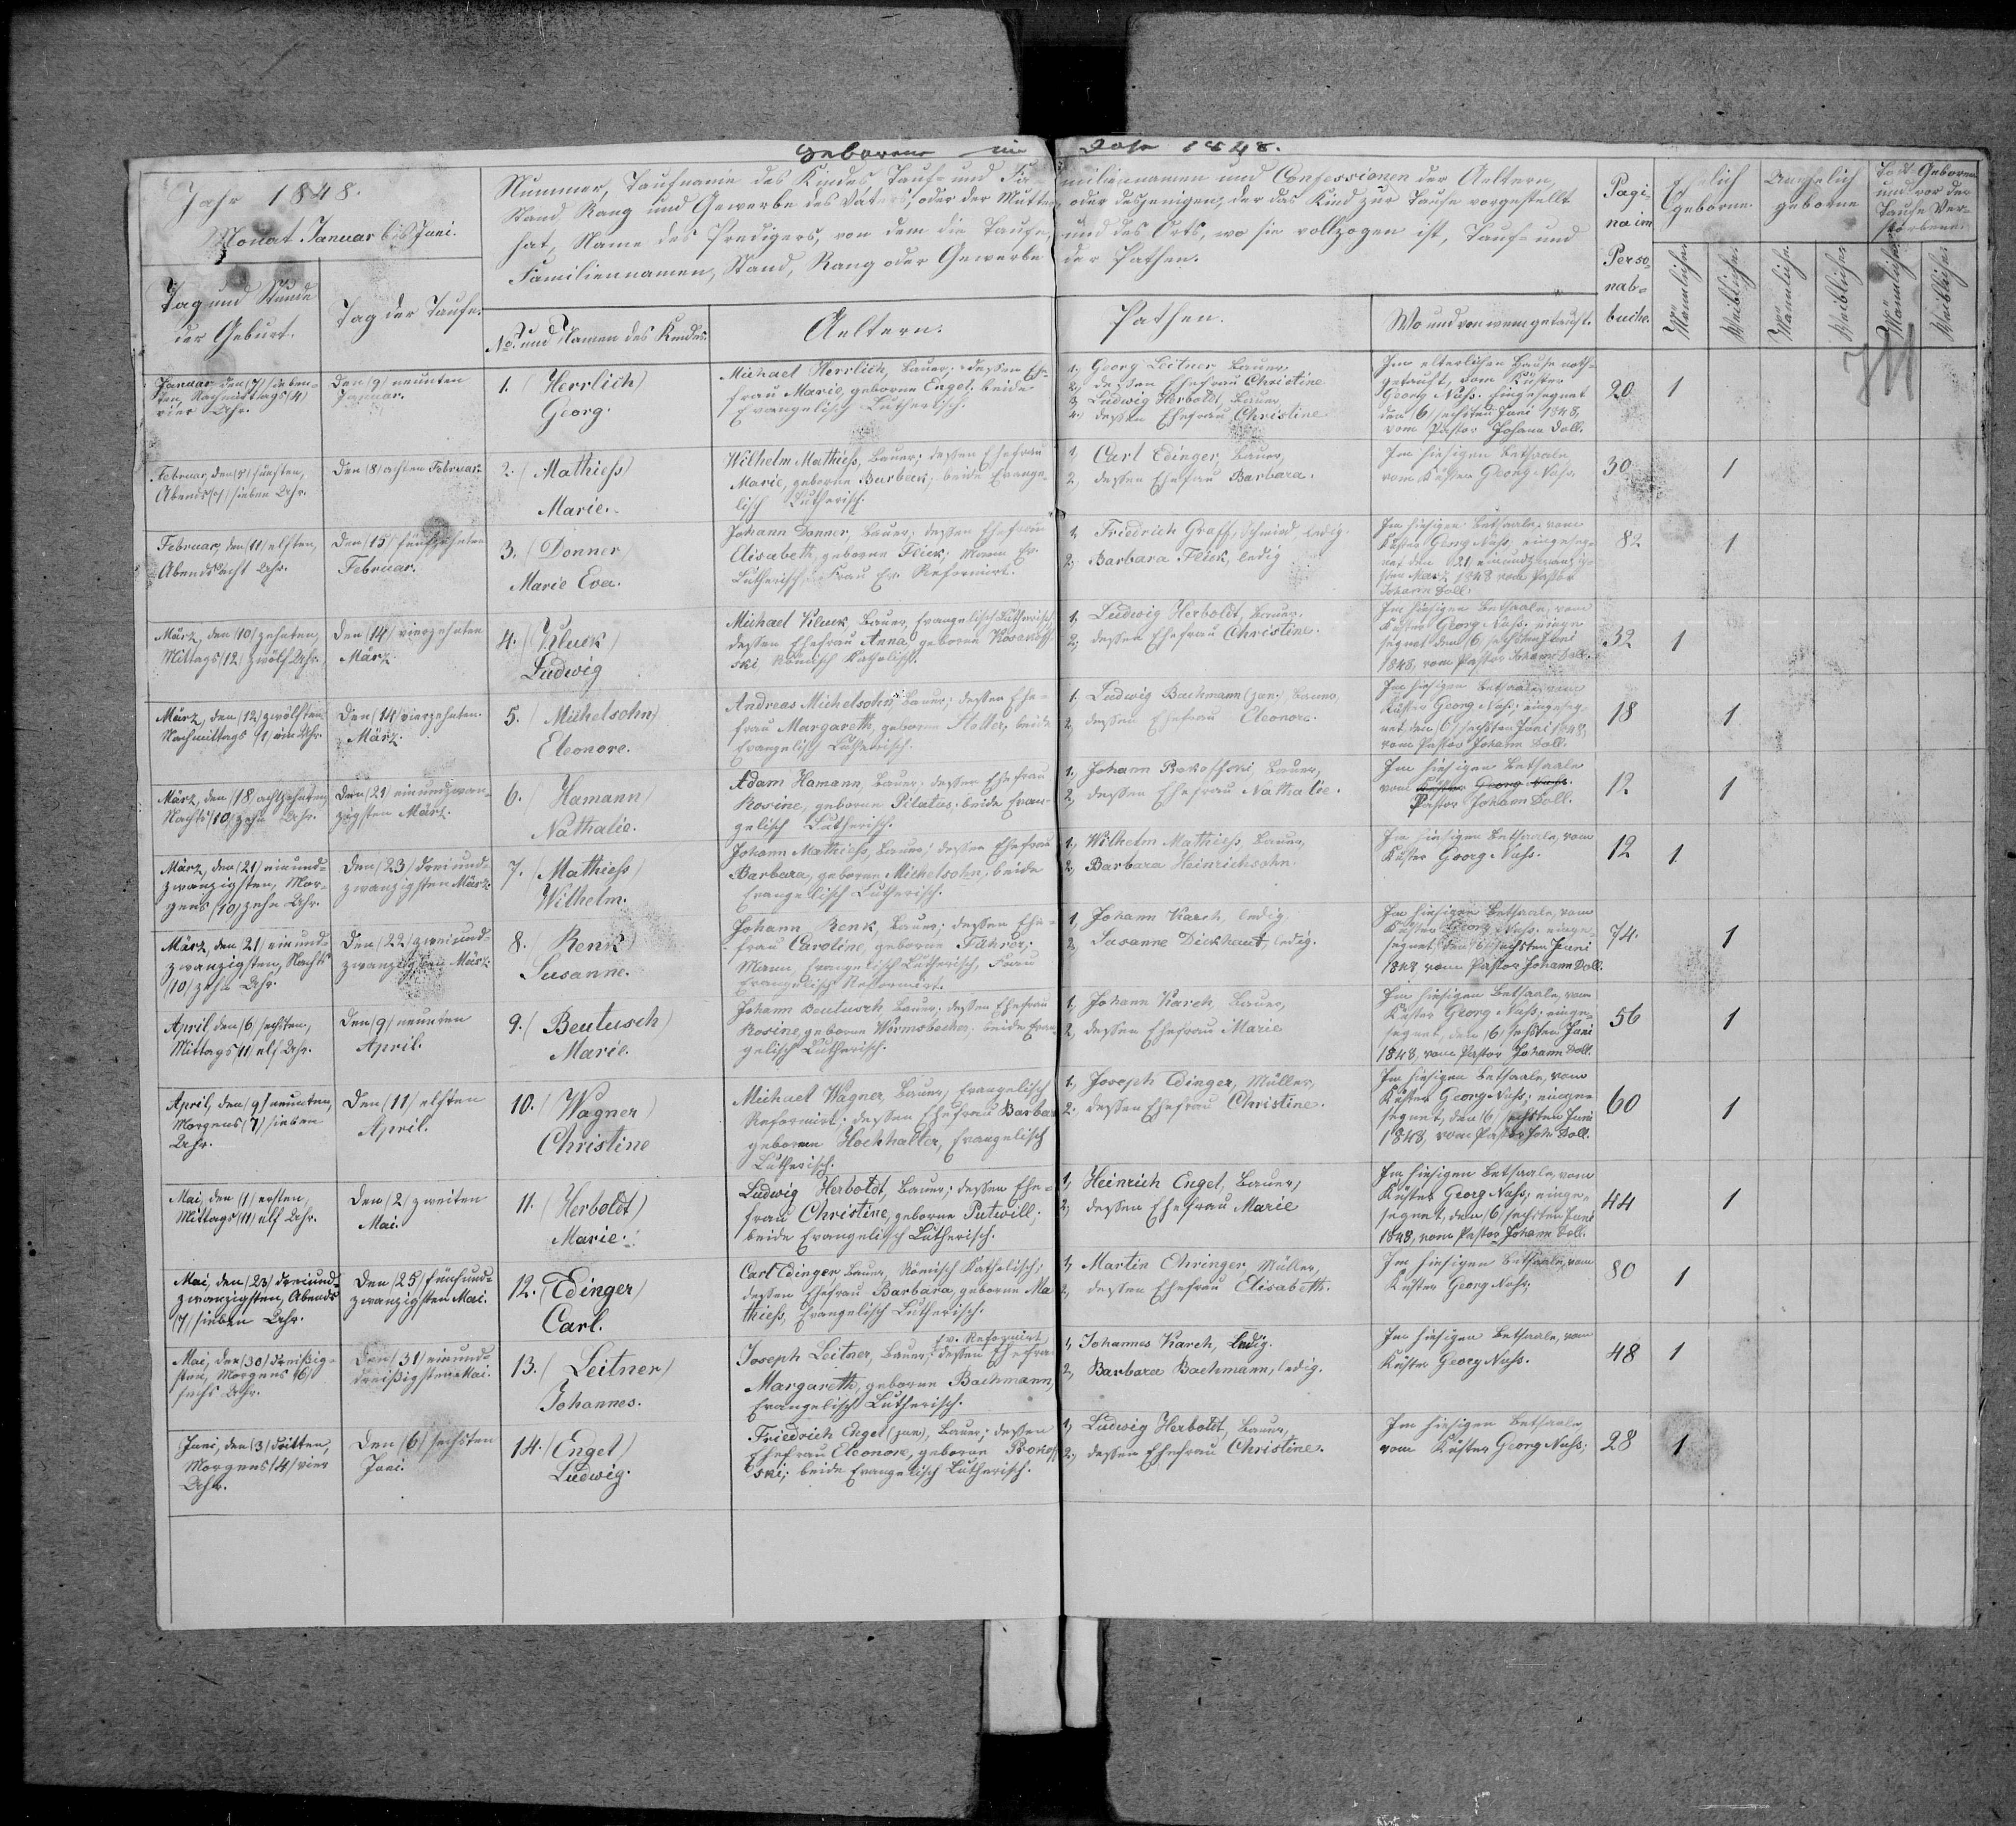 Geboren im Jahr 1848.
Jahr 1848.
Monat Januar bis Juni.
Nummer, Taufname des Kindes Tauf- und Familiennamen und Confessionen der Aeltern,
Stand Rang und Gewerbe des Vaters, oder der Mutter, oder desjenigen, der das Kind zur Taufe vorgestellt
hat, Name des Predigers, von dem die Taufe, und des Orts, wo sie vollzogen ist, Tauf- und
Familiennamen, Stand, Rang oder Gewerbe der Pathen.
Pagi-
na im
Perso-
nal-
buche.
Ehelich
geborne.
Unehelich
geborne
Todt Geborene
und vor der
Taufe Ver-
storbene.
Tag und Stunde
der Geburt.
Tag der Taufe.
No. und Namen des Kindes
Aeltern.
Pathen.
Wo und von wem getauft.
Männliche.
Weibliche.
Männliche.
Weibliche.
Männliche.
Weibliche.
Januar den (7) sieben-
ten, Nachmittags (4)
vier Uhr.
Den (9) neunten
Januar.
1. (Herrlich)
Georg.
Michael Herrlich, Bauer, dessen Ehe-
frau Marie, geborne Engel, beide
Evangelisch Lutherisch.
1, Georg Leitner Bauer,
2, dessen Ehefrau Christine
3, Ludwig Herboldt, Bauer,
4, dessen Ehefrau Christine
Im elterlichen Hause noth-
getauft, vom Küster
Georg Nuss. Eingesegnet
den (6) sechsten Juni 1848,
vom Pastor Johann Doll.
20
1
Februar, den (5) fünften,
Abends (7) sieben Uhr.
Den (8) achten Februar.
2. (Mathiess)
Marie.
Wilhelm Mathiess, Bauer; dessen Ehefrau
Marie, geborne Burbeck; beide Evange-
lisch Lutherisch.
1, Carl Edinger, Bauer,
2, dessen Ehefrau Barbara.
Im hiesigen Betsaale,
vom Küster Georg Nuss.
30
1
Februar, den (11) elften,
Abends acht Uhr.
Den (15) fünfzehnten
Februar.
3. (Donner)
Marie Eva.
Johann Donner, Bauer; dessen Ehefrau
Elisabeth, geborne Flick; Mann Ev.
Lutherisch, Frau Ev. Reformirt.
1, Friedrich Graff, Schmied ledig.
2, Barbara Flick, ledig
Im hiesigen Betsaale, vom
Küster Georg Nuss; eingeseg-
net den (21) einundzwanzig-
sten März 1848 vom Pastor
Johann Doll.
82
1
März, den (10) zehnten,
Mittags (12) zwölf Uhr.
Den (14) vierzehnten
März.
4. (Kluck)
Ludwig
Michael Kluck, Bauer, Evangelisch Lutherisch,
dessen Ehefrau Anna, geborne Kosakoff-
ski, Römisch Katholisch.
1, Ludwig Herboldt, Bauer.
2, dessen Ehefrau Christine.
Im hiesigen Betsaale, vom
Küster Georg Nuss; einge-
segnet den (6) sechsten Juni
1848, vom Pastor Johann Doll.
32
1
März, den (12) zwölften
Nachmittags (1) ein Uhr.
Den (14) vierzehnten.
März.
5. (Michelsohn)
Eleonore.
Andreas Michelsohn, Bauer; dessen Ehe-
frau Margareth, geborne Stoller, beide
Evangelisch Lutherisch.
1, Ludwig Bachmann (jun.) Bauer,
2, dessen Ehefrau Eleonore.
Im hiesigen Betsaale, vom
Küster Georg Nuss; eingeseg-
net den (6) sechsten Juni 1848,
vom Pastor Johann Doll.
18
1
März, den (18) achtzehnten,
Nachts (10) zehn Uhr.
Den (21) einundzwan-
zigsten März.
6. (Hamann)
Nathalie.
Adam Hamann, Bauer; dessen Ehefrau
Rosine, geborne Pilatus; beide Evan-
gelisch Lutherisch.
1, Johann Prokoffski, Bauer,
2, dessen Ehefrau Nathalie.
Im hiesigen Betsaale
vom Küster Georg Nuss.
Pastor Johann Doll.
12
1
März, den (21) einund-
zwanzigsten, Mor-
gens (10) zehn Uhr.
Den (23) dreiund-
zwanzigsten März.
7. (Mathiess)
Wilhelm.
Johann Mathiess, Bauer; dessen Ehefrau
Barbara, geborne Michelsohn; beide
Evangelisch Lutherisch.
1, Wilhelm Mathiess, Bauer,
2, Barbara Heinrichsohn.
Im hiesigen Betsaale, vom
Küster Georg Nuss.
12
1.
März, den (21) einund-
zwanzigsten, Nachts
(10) zehn Uhr.
Den (22) zweiund-
zwanzigsten März.
8. (Renk)
Susanne.
Johann Renk, Bauer; dessen Ehe-
frau Caroline, geborne Führer;
Mann, Evangelisch Lutherisch, Frau
Evangelisch Reformirt.
1, Johann Karch, ledig,
2, Susanne Dickhaut, ledig.
Im hiesigen Betsaale, vom
Küster Georg Nuss; einge-
segnet, den (6) sechsten Juni
1848 vom Pastor Johann Doll.
74.
1
April, den (6) sechsten,
Mittags (11) elf Uhr.
Den (9) neunten
April.
9. (Beutusch)
Marie.
Johann Beutusch Bauer; dessen Ehefrau
Rosine, geborne Wormsbecher; beide Evan-
gelisch Lutherisch.
1, Johann Karch, Bauer,
2, dessen Ehefrau Marie
Im hiesigen Betsaale, vom
Küster Georg Nuss; einge-
segnet, den (6) sechsten Juni
1848, vom Pastor Johann Doll.
56
1
April, den (9) neunten,
Morgens (7) sieben
Uhr.
Den (11) elften
April.
10. (Wagner)
Christine
Michael Wagner, Bauer, Evangelisch
Reformirt; dessen Ehefrau Barbara
geborne Hochhalter, Evangelisch
Lutherisch.
1, Joseph Edinger, Müller,
2, dessen Ehefrau Christine.
Im hiesigen Betsaale, vom
Küster Georg Nuss; einge-
segnet, den (6) sechsten Juni
1848, vom Pastor Joh. Doll.
60
1
Mai, den (1) ersten,
Mittags (11) elf Uhr.
Den (2) zweiten
Mai.
11. (Herboldt)
Marie.
Ludwig Herboldt, Bauer; dessen Ehe-
frau Christine, geborne Putwill;
beide Evangelisch Lutherisch.
1, Heinrich Engel, Bauer,
2, dessen Ehefrau Marie
Im hiesigen Betsaale, vom
Küster Georg Nuss; einge-
segnet, den (6) sechsten Juni
1848, vom Pastor Johann Doll.
44
1
Mai, den (23) dreiund-
zwanzigsten, Abends
(7) sieben Uhr.
Den (25) fünfund-
zwanzigsten Mai.
12. (Edinger)
Carl.
Carl Edinger, Bauer, Römisch Katholisch;
dessen Ehefrau Barbara, geborne Ma-
thiess, Evangelisch Lutherisch.
1, Martin Ehringer, Müller,
2, dessen Ehefrau Elisabeth.
Im hiesigen Betsaale, vom
Küster Georg Nuss;
80
1
Mai, den (30) dreißig-
sten, Morgens (6)
sechs Uhr.
Den (31) einund-
dreißigsten Mai.
13. (Leitner)
Johannes.
Joseph Leitner, Bauer; Ev. Reformirt dessen Ehefrau
Margareth, geborne Bachmann,
Evangelisch Lutherisch.
1, Johannes Karch, ledig.
2, Barbara Bachmann, ledig.
Im hiesigen Betsaale, vom
Küster Georg Nuss.
48
1
Juni, den (3) dritten,
Morgens (4) vier
Uhr.
Den (6) sechsten
Juni.
14. (Engel)
Ludwig.
Friedrich Engel (jun), Bauer; dessen
Ehefrau Eleonore, geborne Prokoff-
ski; beide Evangelisch Lutherisch.
1, Ludwig Herboldt, Bauer,
2, dessen Ehefrau Christine.
Im hiesigen Betsaale
vom Küster Georg Nuss;
28
1